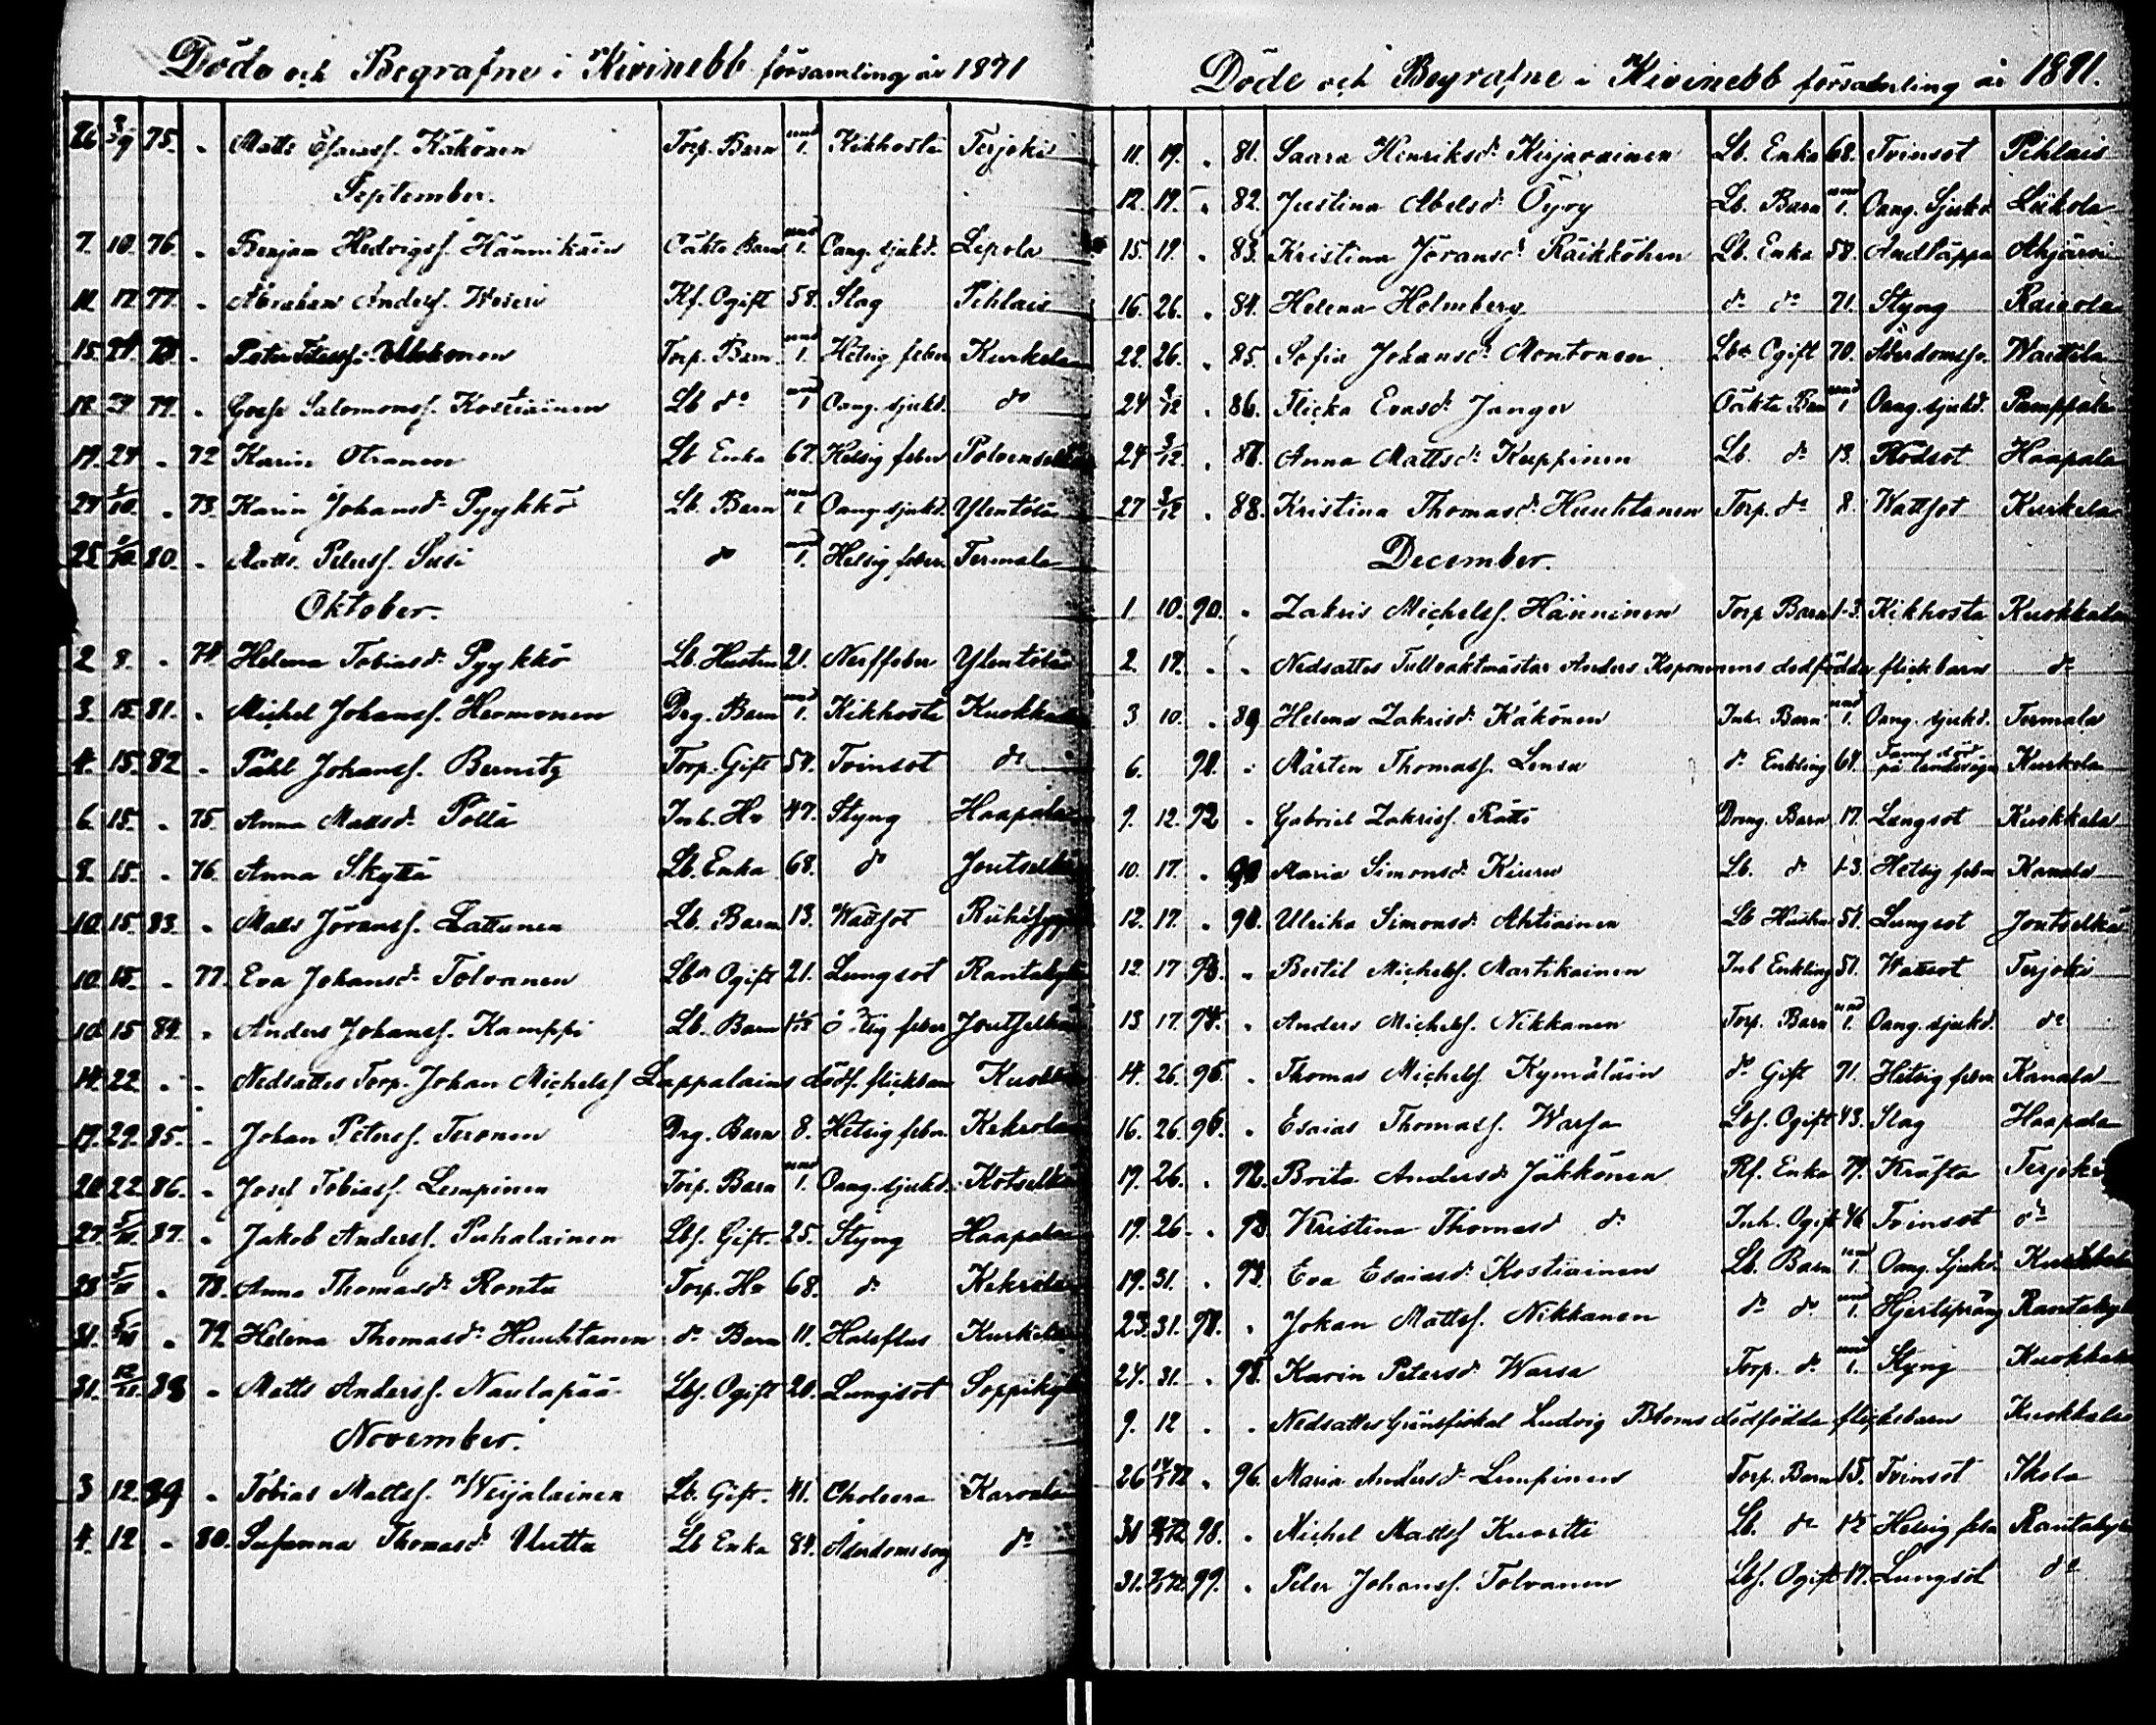 Döde och Begrafne i Kivinebb församling år 1871
26 3/9 75. " Matts Esaiass. Käkönen Torp. Barn und 1. Kikhosta Terjoki
September.
7. 10. 76. " Benjam Hedvigss. Hännikäin Oäkta Barn und 1. Oang. sjukd. Lipola
11. 17. 77. " Abraham Anderss. Kf. Ogift 58. Slag Pihlais
15. 24 78. " Peter Peterss. Ukkonen Torp. Barn und 1. Hetsig feber Kurkela
18. 24 79. " Salomonss. Kostiainen Lb. do und 1 Oang. sjukd. do
19. 24 " 72 Karin Otranen Lb Enka 67. Hetsig feber Polvenselkä
24 1/10 " 73. Karin Johansd: Pyykkö Lb. Barn und 1. Oang. sjukd. Ylentölä
25 1/10 80. " Matts Peterss. Susi do und 1. Hetsig feber Termola
Oktober.
2 8. " 74. Helena Tobiasd: Pyykkö Lb. Hustru 21. Nerffeber Ylentölä
3. 15 81. " Michel Johanss. Hermonen Drg. Barn und 1. Kikhosta Kuokkala
4. 15. 82 " Påhl Johanss. Bernitz Torp. Gift 54. Tvinsot do
6. 15. " 75. Anna Mattsd: Pöllä Inh. Hu 47. Styng Haapala
8. 15. " 76. Anna Skyttä Lb. Enka 68. do Joutselkä
10. 15. 83. " Matts Jöranss. Lattunen Lb. Barn 13. Wattsot
10. 15. " 77. Eva Johansd: Tolvanen Lbdr Ogift 21. Lungsot Rantakylä
10. 15 84. " Anders Johanss. Kamppi Lb. Barn feber Joutselkä
14. 22. " " Nedsattes Torp. Johan Michelss Lappalains dödf. flickbarn Kuokkala
19. 29. 85. " Johan Peterss. Teronen Drg. Barn 8. Hetsig feber. Kekrola
20 22. 86. " Josef Tobiass. Lempinen Torp. Barn und 1. Oang. sjukd. Kotselkä
27. 5/11 87. " Jakob Anderss. Puhalainen Lbs. Gift. 25. Styng Haapala
28 5/11 " 78. Anna Thomasd: Rontu Torp. Hu 68. do Kekrola
31. 5/11 " 79. Helena Thomasd: Huuhtanen do Barn 11. Halsflus Kurkela
31. 12/11 88 " Matts Anderss. Naulapää Lbs. Ogift 20. Lungsot Seppikylä
November.
3 12. 89 " Tobias Mattss. Weijalainen Lb. Gift. 41. Cholera Karvala
4. 12 " 80. Susanna Thomasd: Uutta Lb Enka 84. Ålderdomssvag do
Döde och Begrafne i Kivinebb församling år 1891.
11. 19. " 81. Saara Henriksd: Kirjavainen Lb. Enka 68. Tvinsot Pihlais
12. 19. " 82. Justina Abelsd: Öyry Lb. Barn und 1. Oang. Sjukd. Liikola
15. 19. " 83. Kristina Jöransd: Räikköhen Lb. Enka 58. Andtäppa Ahjärvi
16. 26. " 84. Helena Holmberg do do 71. Styng Raivola
22. 26. " 85. Sofia Johansd: Montonen Lbdr Ogift 70. Ålderdomssv. Warttila
24 3/12 " 86. Flicka Evasd: Janger Oäkta Barn und 1 Oang. sjukd. Pamppala
24 3/12 " 87. Anna Mattsd: Kuppinen Lb. do 13. Rödsot Haapala
27 3/12 " 88. Kristina Thomasd: Huuhtanen Torp. do 8. Wattsot Kurkela
December.
1. 10. 90. " Zakris Michelss. Hänninen Torp Barn 1-3. Kikhosta Kuokkala
2. 17. " " Nedsattes Tullvaktmästar Anders Koponenens dödfödda flickbarn do
3 10. " 89 Helena Zakrisd: Käkönen Inh. Barn und 1. Oang. sjukd. Termola
6. 91. " Mårten Thomass. Lensu do Enkling 64. Fanns död på landsvägen Kurkela
9. 12. 92 " Gabriel Zakriss. Rätti Dreng. Barn 17. Lungsot Kuokkala
10. 17. " 90 Maria Simonsd: Kiuru Lb. do 1-3. Hetsig feber Kanala
12. 17. " 91. Ulrika Simonsd: Ahtiainen Lb Hustru 51. Lungsot Joutselkä
12. 17 93. " Bertil Michelss. Martikainen Inh Enkling 51. Wattsot Terjoki
13. 17. 94. " Anders Michelss. Nikkanen Torp. Barn und 1. Oang. sjukd. do
14. 26. 95. " Thomas Michelss. Kymäläin do Gift 71. Hetsig feber Kanala
16. 26. 96. " Esaias Thomass. Warsa Lbs. Ogift 43. Slag Haapala
19. 26. " 92. Brita Andersd: Jäkkönen Rf. Enka 79. Kräfta Terjoki
19. 26. " 93 Kristina Thomasd do Inh. Ogift 46 Tvinsot do
19. 31. " 94. Eva Esaiasd: Kostiainen Lb. Barn und 1. Oang. Sjukd. Kuokkala
23. 31. 97. " Johan Mattss. Nikkanen do do und 1. Hjertsprång Rantakylä
24. 31. " 95. Karin Petersd: Warsa Torp. do und 1. Styng Kuokkala
9. 12 " " Nedsattes Ludvig Bloms dödfödda flickebarn Kuokkala
26 14/1 72 " 96. Maria Andersd: Lempinen Torp. Barn 15. Tvinsot Ikola
31 72 98. " Michel Mattss Kuortti Lb. do Hetsig feber Rantakylä
31. 7/1 72 99. " Peter Johanss. Tolvanen Lbs. Ogift 17. Lungsot do